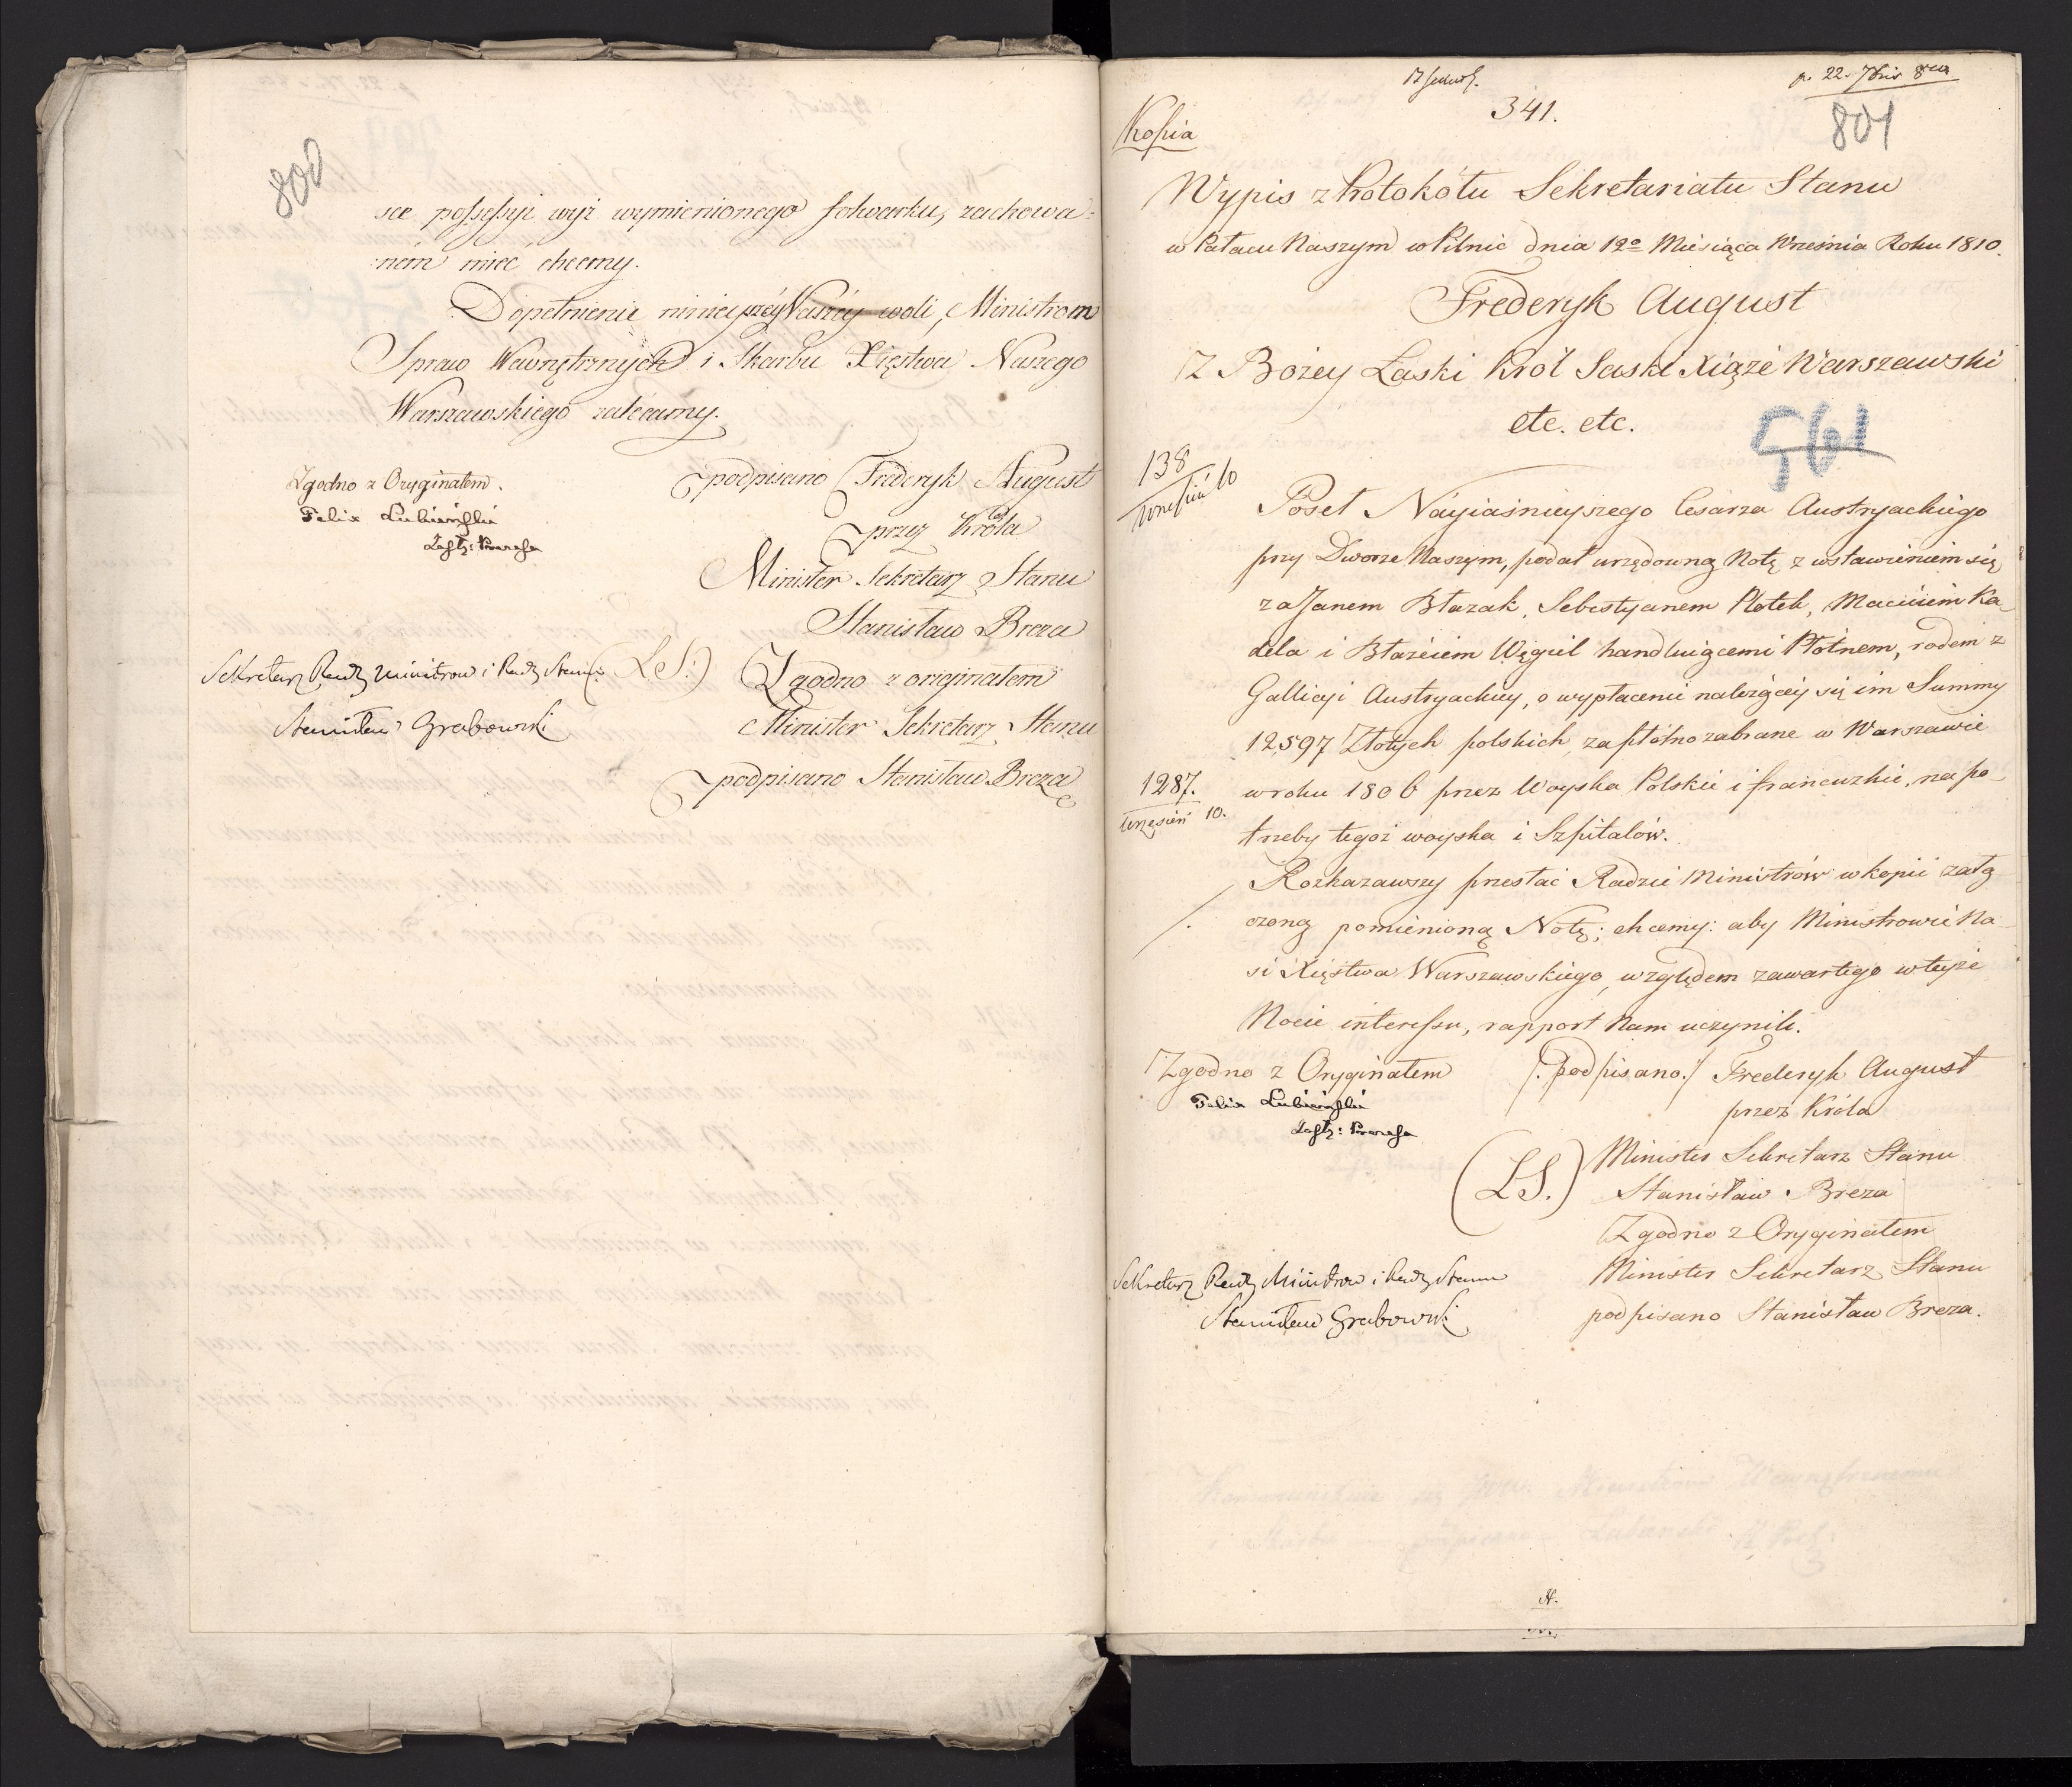 800
sce possessyi wyż wymienionego folwarku, zachowa=
:nem mieć chcemy.
Dopełnienie ninieyszéy Naszéy woli, Ministrom
Spraw Wewnętrznych i Skarbu Xięstwa Naszego
Warszawskiego zalecamy.
Zgodno z Oryginałem.
Felix Lubieński
Zastę: Prezesa
podpisano Frederyk August
przez Króla
Minister Sekretarz Stanu
Stanisław Breza
Sekretarz Rady Ministrow i Rady Stanu
(L.S:)
Zgodno z originałem
Stanisław Grabowski
Minister Sekretarz Stanu
podpisano Stanisław Breza
p. 22. 7bris 8va
341.
801
Kopia
Wypis z Protokółu Sekretariatu Stanu
w Pałacu Naszym w Pilnic dnia 12o Miesiąca Września Roku 1810.
Frederyk August
Z Bożey Łaski Król Saski Xiąże Warszawski
etc. etc.
561
138
wrzesień 10
Poseł Nayiaśnieyszego Cesarza Austryackiego
przy Dworze Naszym, podał urzędowną Notę z wstawieniem się
za Janem Błazak, Sebestyanem Płotek, Macieiem Ka-
dela i Błażeiem Węgiel handluiącemi Płótnem, rodem z
Gallicyi Austryackiey, o wypłacenie należącéy się im Summy
12,597 Złotych polskich, za płótno zabrane w Warszawie
1287.
wrzesień 10.
w roku 1806 przez Woyska Polskie i francuzkie, na po-
trzeby tegoż woyska i Szpitalów.
Rozkazawszy przesłać Radzie Ministrów w kopii załą
czoną pomienioną Notę; chcemy: aby Ministrowie Na-
si Xięstwa Warszawskiego, względem zawartego w teyże
Nocie interessu, rapport Nam uczynili.
Zgodno z Oryginałem
/:podpisano:/ Frederyk August
Felix Lubieński
Zastę: Prezesa
przez Króla
(LS.)
Minister Sekretarz Stanu
Stanisław Breza
Zgodno z Oryginałem
Sekretarz Rady Ministrow i Rady Stanu
Minister Sekretarz Stanu
Stanisław Grabowski
podpisano Stanisław Breza.